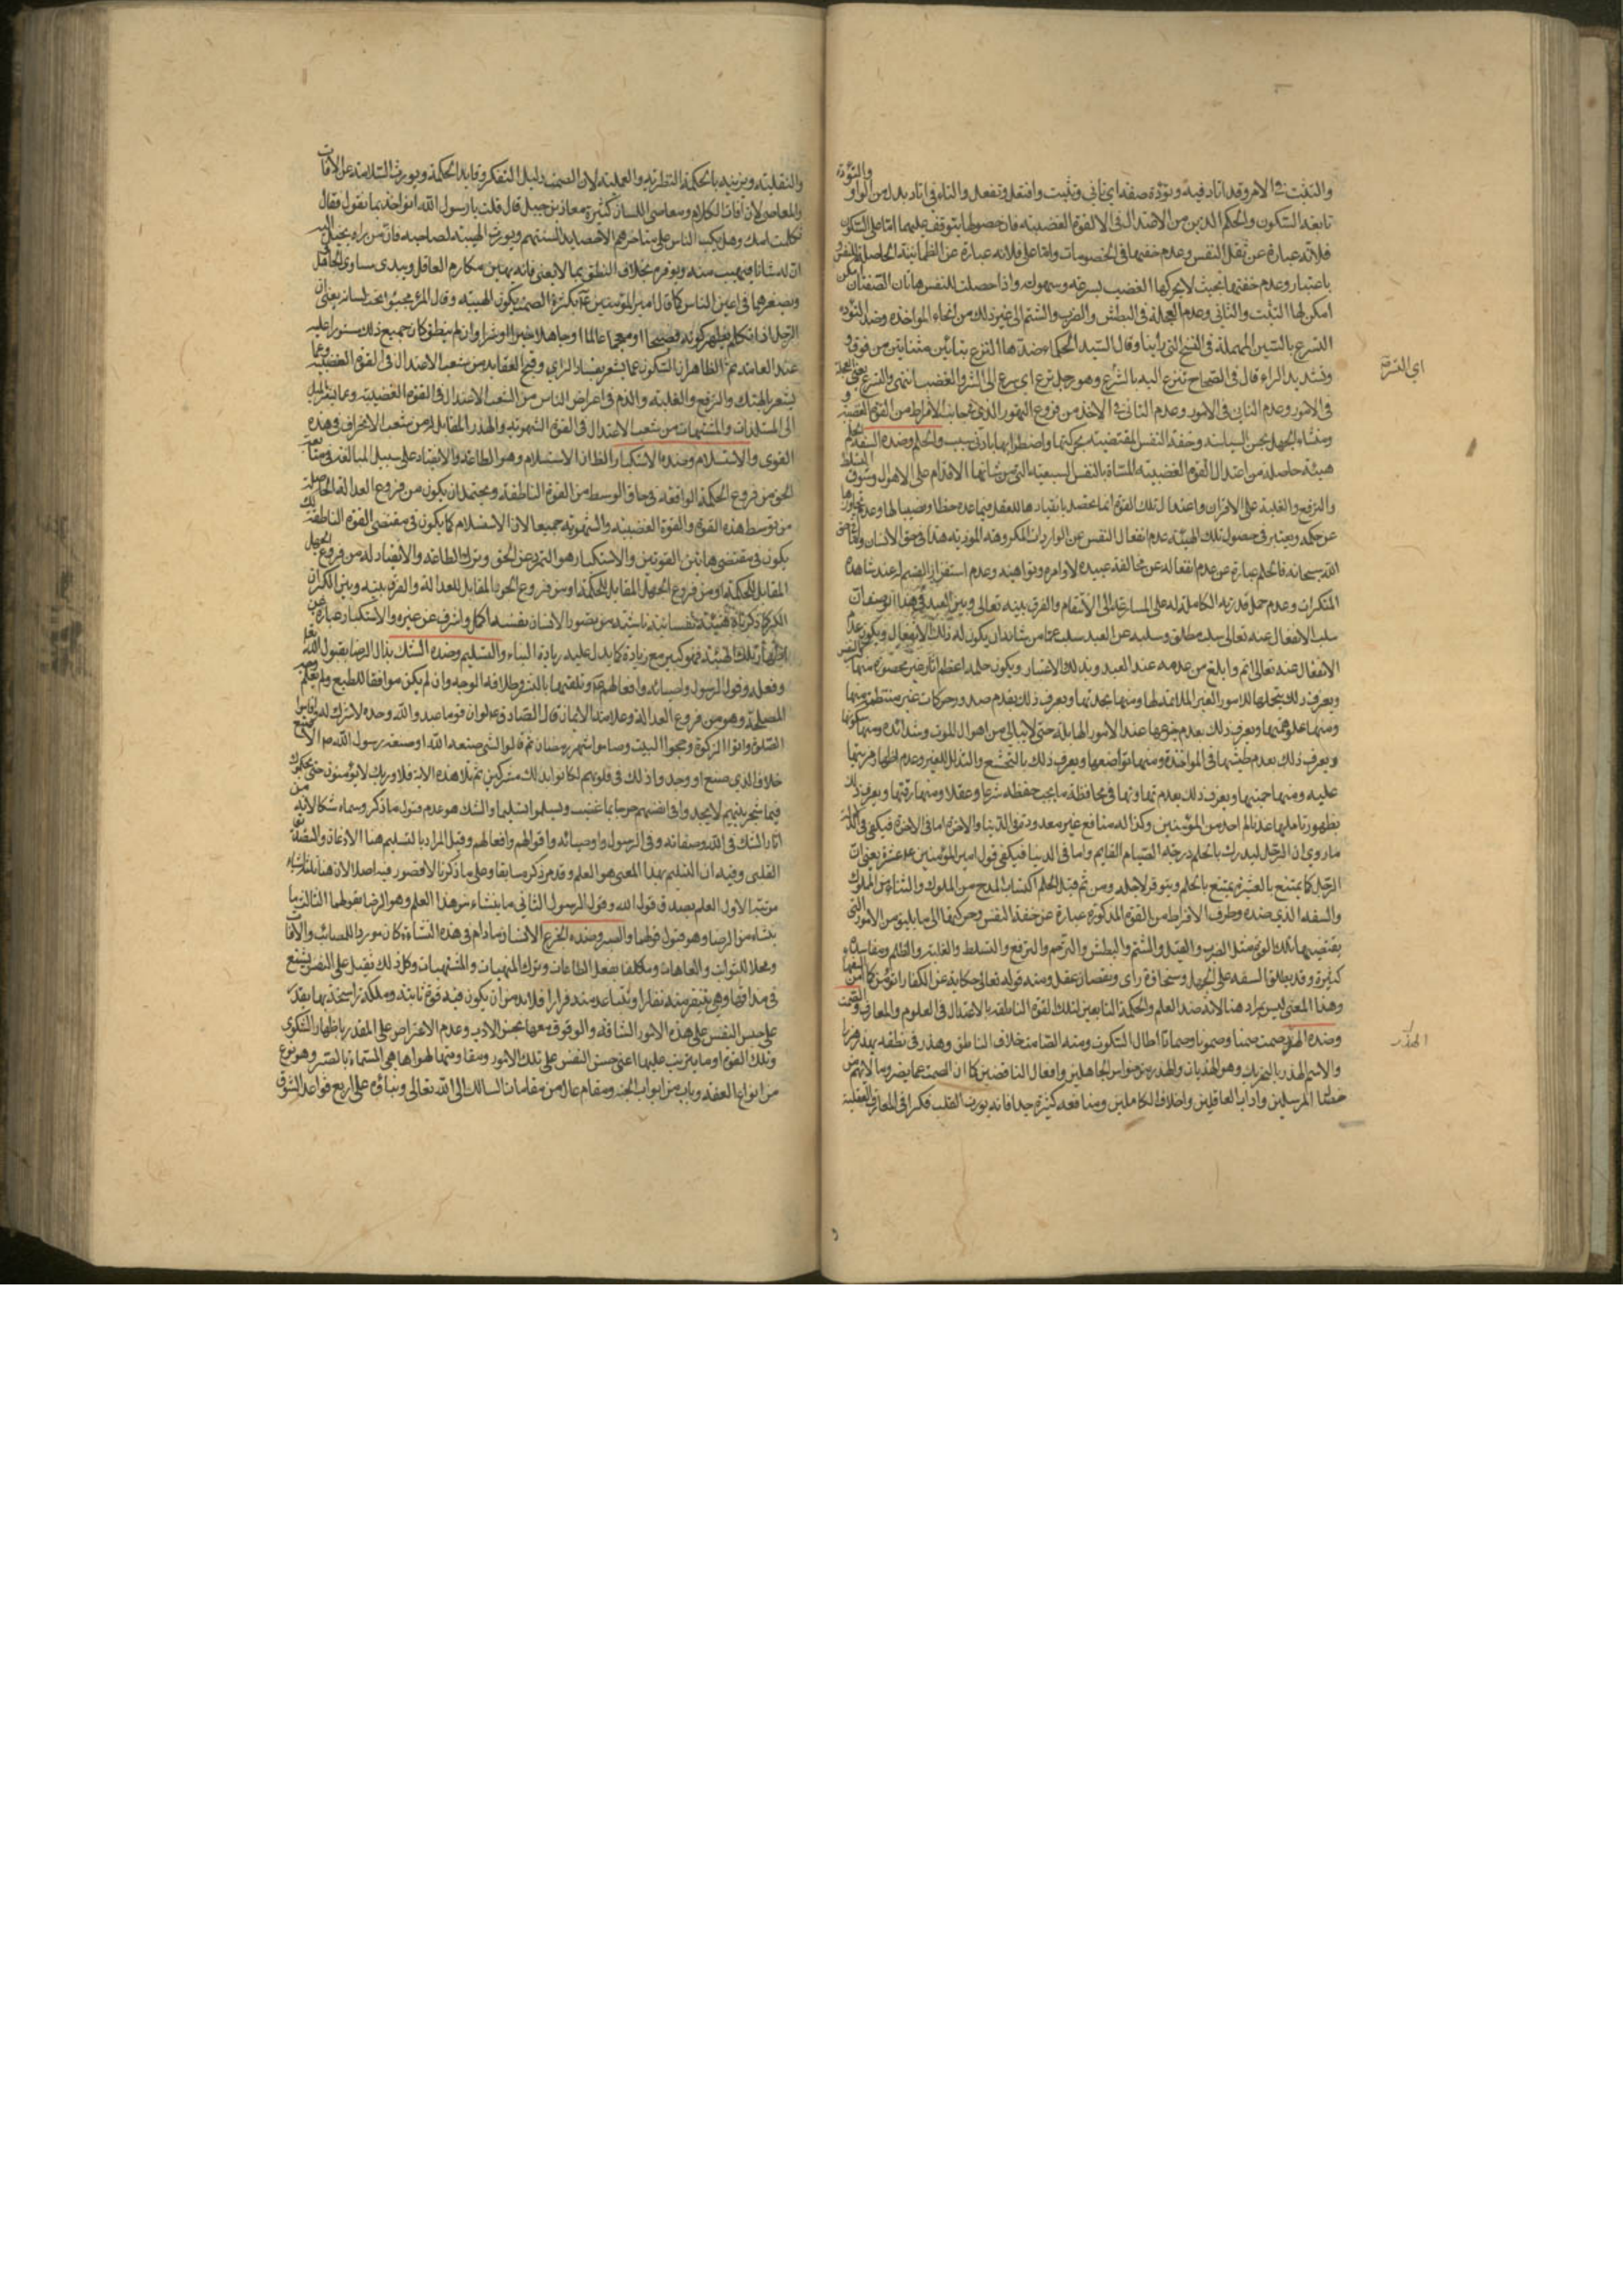 والتثبت في الامر وقد اتاد فيه وتوءدة صفة اي تأنى وتثبت وافتعل وتفعل والتاء في اتاد بدل من الواو والتؤدة
تابعة السكون والحلم الذين من الاعتدال في القوة الغضبية فان حصولها يتوقف عليهما اما على السكون
فلانه عبارة عن ثقل النفس وعدم خفتها في الخصومات واما على فلانه عبارة عن الطمانينة الحاصلة للنفس
باعتبار وعدم خفتها بحيث لا يحركها الغضب بسرعة وسهولة واذا حصلت للنفس هاتان الصفتان امكن
امكن لها التثبت والتاني وعدم العجلة في البطش والضرب والشتم الى غير ذلك من انحاء المواخذة وضد التؤدة
التسرع بالسين المهملة في النسخ التي راينا وقال السيد الحكماء ضدها التترع بتائين مثناتين من فوق و
وتشديد الراء قال في الصحاح تترع اليه بالشر وهو رجل ترع اي سرع الى الشر والغضب انتهى والتسرع
في الامور وعدم التاني في الامور وعدم التاني في الاخذ من فروع التهور الذي في جانب الافراط من القوة الغضبية
ومنشاه الجهل بحسن السياسة وخفة النفس المقتضية بحركتها واضطرابها بادنى سبب والحلم وضده السفه الحلم
هيئة حاصلة من اعتدال القوة الغضبية المسماة بالنفس السبعية التي من شانها الاقدام على الاهوال وشوق التسلط
والترفع والغلبة على الاقران واعتدال تلك القوة انما يحصل بانقيادها للعقل فيما عده حظا ونصيبا لها وعدم تجاوزها
عن حكمه ويعتبر في حصول تلك الهيئة عدم انفعال النفس عن الواردات المكروهة الموذية هذا في حق الانسان واما في حق
الله سبحانه فالحلم عبارة عن عدم انفعاله عن مخالفة عبيده لاوامره ونواهيه وعدم استفزاز الغضب له عند مشاهدة
المنكرات وعدم حمل قدرته الكاملة له على المسارعة الى الانتقام والفرق بينه تعالى وبين العبد في هذا الوصف ان
سلب الانفعال عنه تعالى سلب مطلق وسلبه عن العبد سلب عما من شانه ان يكون له ذلك الانفعال ويكون عدم
الانفعال عنه تعالى اتم وابلغ من عدمه عند العبد وبذلك الاعتبار ويكون حلمه اعظم
ويعرف ذلك بتحملها للامور الغير الملائمة لها ومنها نجدتها ويعرف ذلك بعدم صدور حركات غير منتظمة منها
ومنها علو همتها ويعرف ذلك بعدم جزعها عند الامور الهايلة حتى لا يبالي من اهوال الموت وشدائده ومنها سكونها
ويعرف ذلك بعدم طيشها في المواخذة ومنها تواضعها ويعرف ذلك بالتخشع والتذلل للغير وعدم اظهار مزيتها
عليه ومنها حميتها ويعرف ذلك بعدم تهاونها في محافظة ما يجب حفظه شرعا وعقلا ومنها رقتها ويعرف ذلك
بظهور تاملها عند تالم احد من المؤمنين وكذا له منافع غير معدودة في الدنيا والاخرة اما في الاخرة فيكفي في ذلك
ما روي ان الرجل ليدرك بالحلم درجة الصيام القايم واما في الدنيا فيكفي قول امير المؤمنين ع عشرة يعني ان
الرجل كما يمتنع بالعشيرة يمتنع بالحلم ويتوقر لاجله ومن ثم قيل الحلم اكتساب المدح من الملوك والثناء من الملوك
والسفه الذي ضده وطرف الافراط من القوة المذكورة عبارة عن خفة النفس وحركتها الى ما يليق من الامور التي
يقتضيها تلك القوة مثل الضرب والقتل والشتم والبطش والترحم والترفع والتسلط والغلبة والظلم ومفاسده
كثيرة وقد يطلق السفه على الجهل وسخافة راى ونقصان عقل ومنه قوله تعالى حكاية عن الكفار انؤمن كما امن السفهاء
وهذا المعنى ليس بمراد هنا لانه ضد العلم والحكمة التابعين لتلك القوة الناطقة بالاعتدال في العلوم والمعارف والصمت
وضده الهذر صمت صمتا وصموتا وصماتا اطال السكوت ومنه الصامت خلاف الناطق وهذر في نطقه يهذر هذرا
والاسم الهذر بالتحريك وهو الهذيان والهذر من خواص الجاهلين وافعال الناقصين كما ان الصمت عما يضر وما لا يهم من
خصال المرسلين واداب العاقلين واخلاق الكاملين ومنافعه كثيرة جدا فانه يورث القلب فكرا في المعارف العقلية
اي التترع
الهذر
والنقلية ويزينه بالحكمة النظرية والعملية لان الصمت دليل التفكر وقايد الحكمة ويورث السلامة عن الافات
والمعاصي لان افات الكلام ومعاصي اللسان كثيرة معاذ بن جبل قال قلت يا رسول الله انواخذ بما نقول فقال
ثكلتك امك وهل يكب الناس على مناخرهم الا حصايد السنتهم ويورث الهيبة لصاحبه فان من راه يخيل اليه
ان له شانا فيهيب منه ويوقره بخلاف النطق بما لا يعني فانه يهين مكارم العاقل ويبدي مساوى الجاهل
ويصغرهما في اعين الناس كما قال امير المؤمنين ع بكثرة الصمت يكون الهيبة وقال المرء مخبوء تحت لسانه يعني ان
الرجل اذا تكلم يظهر كونه فصيحا او معجما عالما او جاهلا خيرا او شرا وان لم ينطق كان جميع ذلك مستورا عليه
عند العامة ثم الظاهر ان السكوت عما يشعر بفساد الراي وقبح العقايد من شعب الاعتدال في القوة الغضبية وعما
يشعر بالهتك والترفع والغلبة والذم في اعراض الناس من الشعب الاعتدال في القوة الغضبية وعما يشعر بالميل
الى المستلذات والمشتهيات من شعب الاعتدال في القوة الشهوية والهذر المقابل له من شعب الانحراف في هذه
القوى والاستسلام وضده الاستكبار الظان الاستسلام وهو الطاعة والانقياد على سبيل المبالغة في متابعة
الحق من فروع الحكمة الواقعة في حاق الوسط من القوة الناطقة ويحتمل ان يكون من فروع العدالة الحاصلة
من توسط هذه القوة والقوة الغضبية والشهوية جميعا لان الاستسلام كما يكون في مقتضى القوة الناطقة كذلك
يكون في مقتضى هاتين القوتين والاستكبار هو التمرد عن الحق وترك الطاعة والانقياد له من فروع الجهل
المقابل للحكمة او من فروع الجهل المقابل للحكمة او من فروع الجور المقابل للعدالة والفرق بينه وبين الكبر ان
الكبر كما ذكرناه هيئة نفسانية ناشئة من تصور الانسان نفسه اكمل واشرف عن غيره والاستكبار عبارة عن
اظهار تلك الهيئة فهو كبير مع زيادة كما يدل عليه زيادة البناء والتسليم وضده الشك بذال الرضا بقبول الله تعالى
وفعله وقول الرسول واوصيائه وافعالهم ع وتلقيها بالبشر وطلاقة الوجه وان لم يكن موافقا للطبع ولم يعلم وجه
المصلحة وهو من فروع العدالة وعلامة الايمان قال الصادق ع لو ان قوما عبدوا الله وحده لا شريك له اقاموا
الصلوة واتوا الزكوة وحجوا البيت وصاموا شهر رمضان ثم قالوا لشي صنعه الله او صنعه رسول الله ص الا صنع
خلاف الذي صنع او وجدوا ذلك في قلوبهم لكانوا بذلك مشركين ثم تلا هذه الاية فلا وربك لا يؤمنون حتى يحكموك
فيما شجر بينهم لا يجدوا في انفسهم حرجا مما قضيت ويسلموا تسليما والشك هو عدم قبول ما ذكر وسماه شكا لانه من
اثار الشك في الله وصفاته وفي الرسول واوصيائه واقوالهم وافعالهم وقيل المراد بالتسليم هنا الاذعان والتصديق
القلبي وفيه ان التسليم بهذا المعنى هو العلم وقد مر ذكره سابقا وعلى ما ذكرنا لا قصور فيه اصلا لان هنا ثلاثة اشياء
مرتبة الاول العلم بصدق قول الله وقول الرسول الثاني ما ينشاء من هذا العلم وهو الرضا بقولهما الثالث ما
ينشاء من الرضا وهو قبول قولهما والصبر وضده الجزع الانسان ما دام في هذه النشاءة كان موردا للمصائب والافات
ومحلا للنوائب والعاهات ومكلفا بفعل الطاعات وترك المنهيات والمشتهيات وكل ذلك ثقيل على النفس بشع
في مذاقها وهي تتنفر منه نفارا وتتباعد منه فرارا فلا بد من ان يكون فيه قوة ثابتة وملكة راسخة بها يقدر
على حبس النفس على هذه الامور الشاقة والوقوف معها بحسن الادب وعدم الاعتراض على المقدر باظهار الشكوى
وتلك القوة او ما يترتب عليها اعني حبس النفس على تلك الامور ومقاومتها لهواها هي المسماة بالصبر وهو نوع
من انواع العفة وباب من ابواب الجنة ومقام عال من مقامات السالك الى الله تعالى وبناؤه على اربع قواعد الشوق